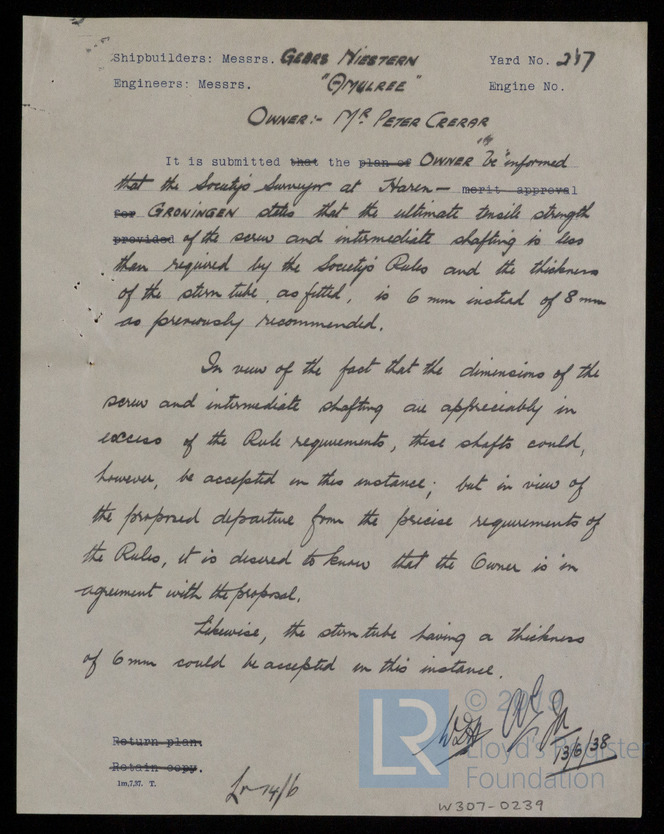 Shipbuilders: Messrs. GEBRS NIESTERN Yard No. 217
Engineers: Messrs. "AMULREE" Engine No.
OWNER:- MR. PETER CRERAR
It is submitted that the plan of OWNER be informed
that the Society's Surveyor at Haren - merit approval
for GRONINGEN states that the ultimate tensile strength
provided of the screw and intermediate shafting is less
than required by the Society's Rules and the thickness
of the stern tube, as fitted, is 6 mm instead of 8 mm
as previously recommended.
In view of the fact that the dimensions of the
screw and intermediate shafting are appreciably in
excess of the Rule requirements, these shafts could,
however, be accepted in this instance; but in view of
the proposed departure from the precise requirements of
the Rules, it is desired to know that the Owner is in
agreement with the proposal.
Likewise, the stern tube having a thickness
of 6 mm could be accepted in this instance.
13/6/38
Return plan.
Retain copy.
1m,7,37. T.
Lr 14/6
LR © 2019 Lloyd's Register
Foundation
W307-0239